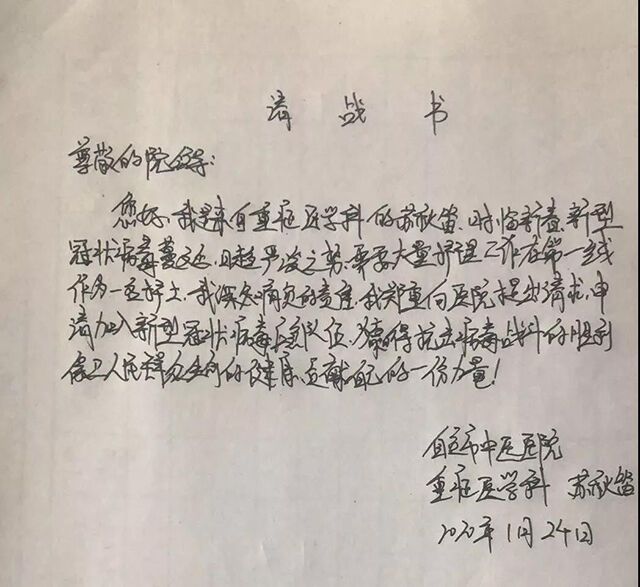 请战书
尊敬的院领导：
您好，我是来自重症医学科的苏秋笛、时临新春，新型
冠状病毒蔓延，日趋严峻之势，需要大量护理工作在第一线
作为一名护士，我深知肩负的责任，我郑重向医院提出请求，申
请加入新型冠状病毒 队伍，获得抗击病毒战 的胜利
保卫人民群众 的健康，贡献 的一份力量！
自贡市中医医院
重症医学科 苏秋笛
2020年1月24日